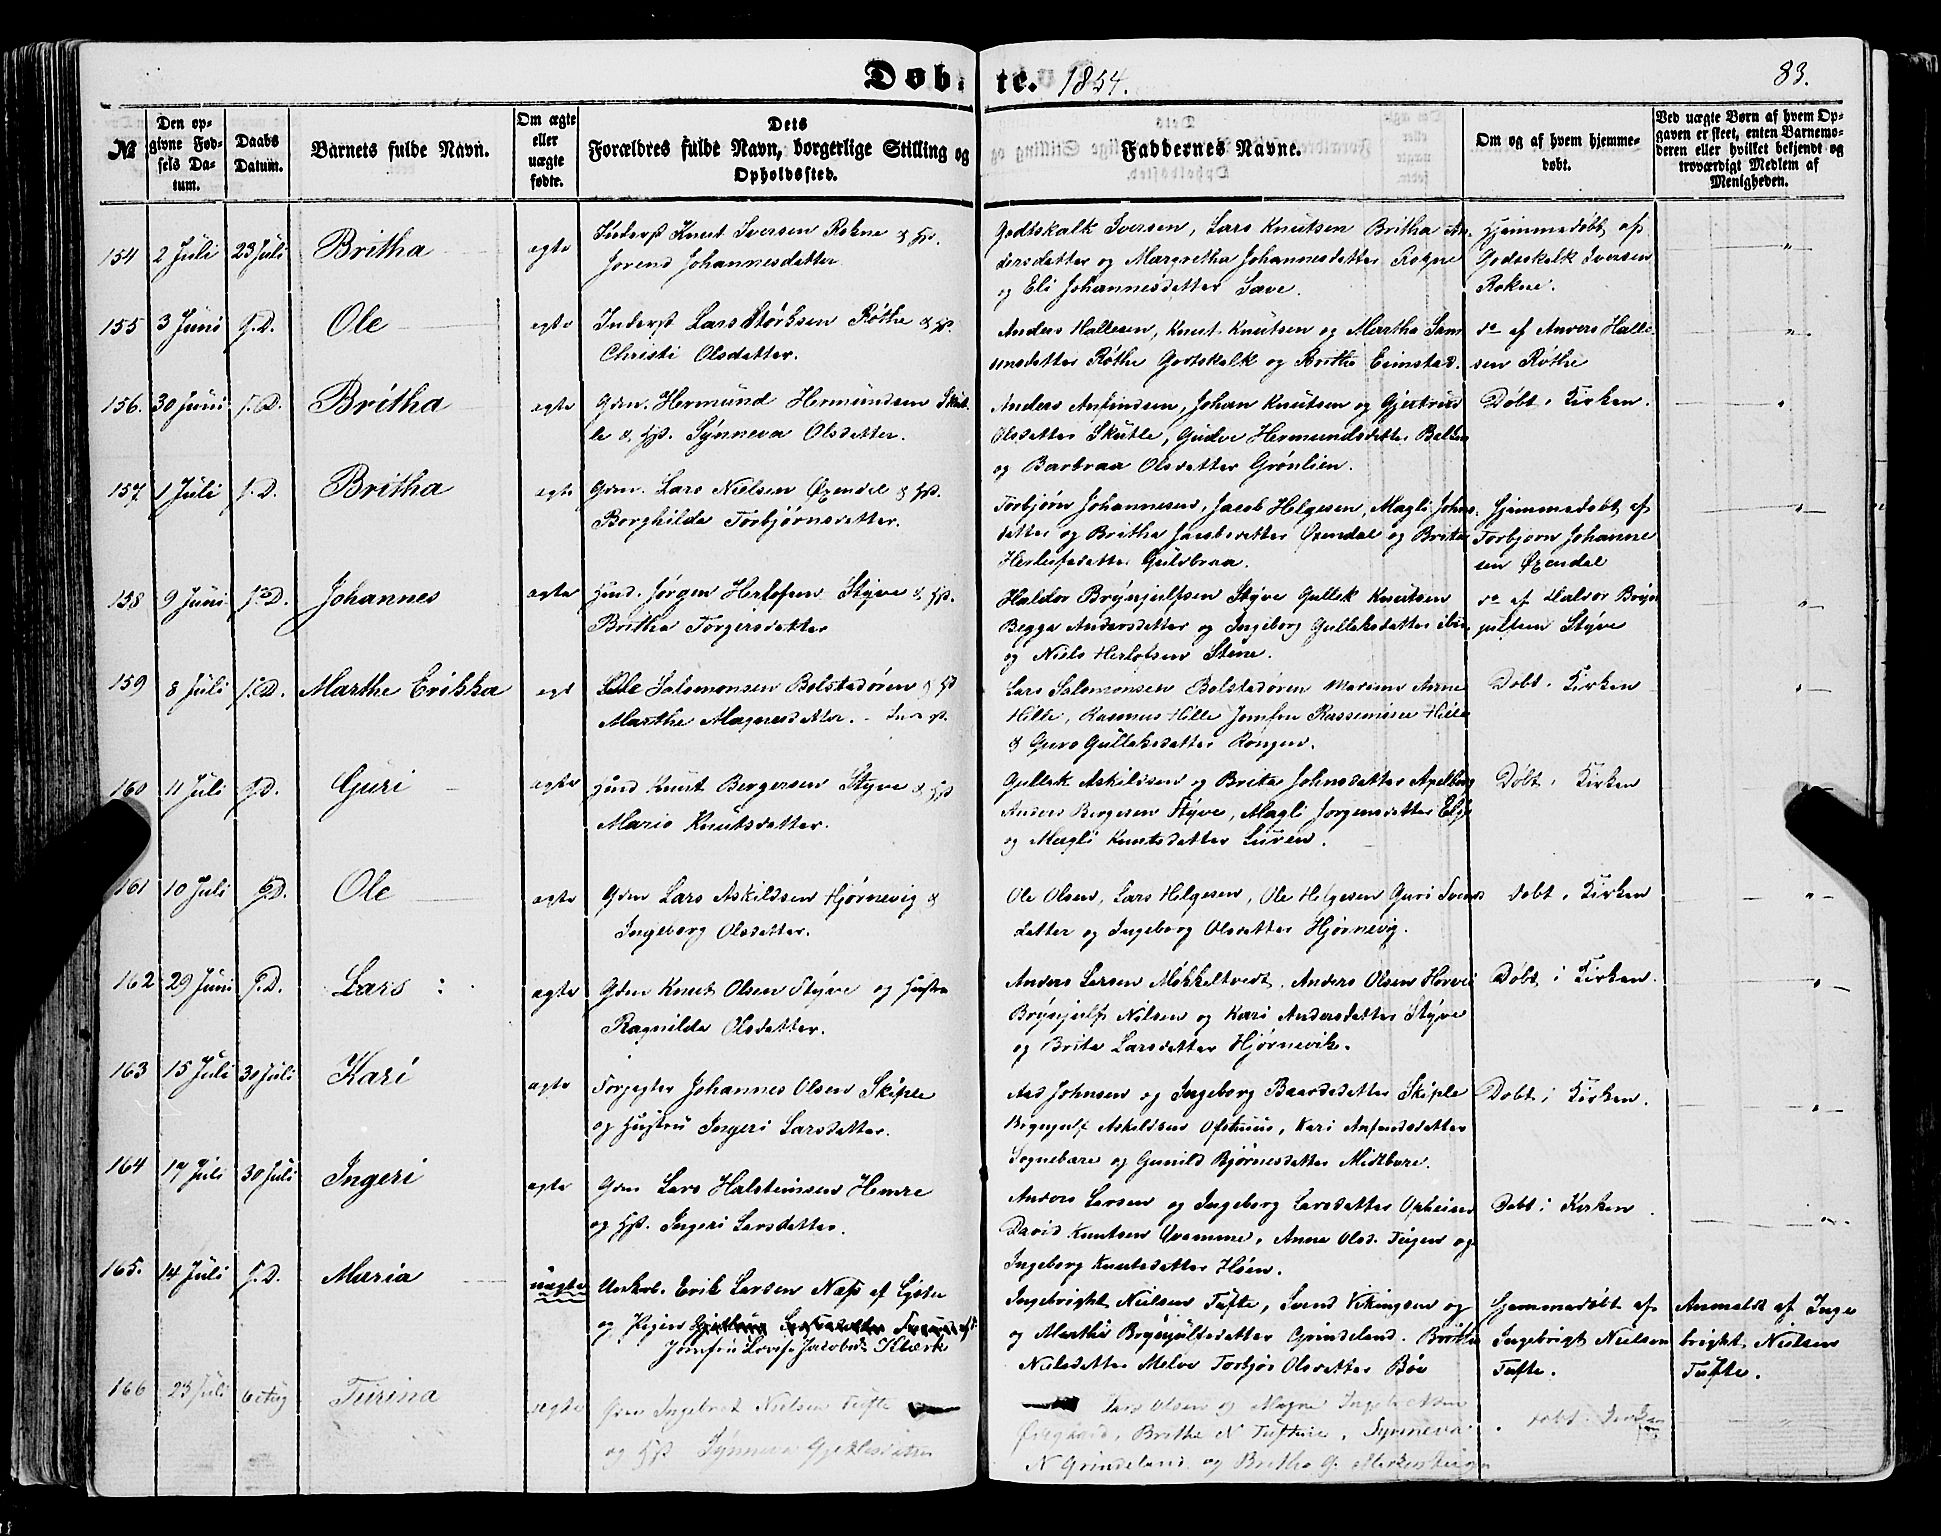 Døbte. 1854. 83.
№
Den opgivne Fødsels Datum.
Daabs Datum.
Barnets fulde Navn.
Om ægte eller uægte fødte.
Dets Forældres fulde Navn, borgerlige Stilling og Opholdssted.
Faddernes Navne.
Om og af hvem hjemmedøbt.
Ved uægte Børn af hvem Opgaven er skeet, enten Barnemoderen eller hvilket bekjendt og troværdigt Medlem af Menigheden.
154 2 Juli 23 Juli Britha egte Inderst Knut Iversen Rokne & Hst.
Jorend Johannesdatter
Godtskalk Iversen, Lars Knutsen Britha An-
dersdatter og Margretha Johannesdatter Rogne
og Eli Johannesdatter Save.
Hjemmedøbt af
Godtskalk Iversen
Rokne.
155 3 Juni S.D. Ole egte Inderst Lars Størksen Røthe & Hst.
Christi Olsdatter.
Anders Hallesen, Knut Knutsen og Martha Sam-
sonsdatter Røthe Godtskalk og Britha Eimstad.
do af Anders Halle-
sen Røthe
156. 30 Juni S.D. Britha egte Gdm. Hermund Hermundsen Skut-
le & Hst. Synneva Olsdatter.
Anders Anfindsen, Johan Knutsen og Gjertrud
Olsdatter Skutle, Gudve Hermundsdatter
og Barbraa Olsdatter Grønlien.
Døbt i Kirken.
157 1 Juli S.D. Britha egte Gdm. Lars Nielsen Øxendal & Hst.
Borghilda Torbjørnsdatter.
Torbjørn Johannesen, Jacob Helgesen, Magli Johns-
datter og Britha Jacobsdatter Øxendal og Brita
Herlufsdatter Guldbraa.
Hjemmedøbt af
Torbjørn Johanne-
sen Øxendal
158 9 Juni S.D. Johannes egte Huusm. Jørgen Herlofsen Styve & Hst.
Britha Torgersdatter
Haldor Brynjulfsen Styve Gullek Knutsen
Begga Andersdatter og Ingeborg Gulleksdatter ibid.
og Niels Herlofsen Stene.
do af Haldor Bryn-
julfsen Styve
159 8 Juli S.D. Marthe Erikka egt Ole Salomonsen Bolstadøren & Hst
Marthe Magnesdatter.
Lars Salomonsen Bolstadøren Madam Anne
Hille, Rasmus Hille Jomfru Rassemine Hille
& Guro Gulleksdatter Rongen.
Døbt i Kirken
160 11 Juli S.D. Guri egte Huusm Knut Bergersen Styve & Hst
Maria Knutsdatter.
Gullek Askildsen og Brita Johnsdatter
Anders Bergersen Styve, Magli Jorgensdatter
og Magli Knutsdatter Luren.
Døbt i Kirken
161 10 Juli S.D. Ole egte Gdm Lars Askildsen Hjørnevig &
Ingeborg Olsdatter.
Ole Olsen, Lars Helgesen, Ole Helgesen Guri Svends-
datter og Ingeborg Olsdatter Hjørnevig.
Døbt i Kirken
162 29 Juni S.D. Lars egte Gdm Knut Olsen Styve og Hustru
Ragnilda Olsdatter.
Anders Larsen Møkkeltvedt, Anders Olsen Horvei
Brynjulf Nilsen og Kari Andersdatter Styve
og Brita Larsdatter Hjørnevik.
Døbt i Kirken.
163 15 Juli 30 Juli Kari egte Forpagter Johannes Olsen Skiple
og Hustru Ingeri Larsdatter.
Aad Johnsen og Ingeborg Baardsdatter Skiple
Brynjulf Askeldsen, Kari Anfindsdatter
Sognebære og Gunild Bjørnesdatter Midtbære.
Døbt i Kirken.
164 17 Juli 30 Juli Ingeri egte Gdm Lars Halsteinssen Hemre
og Hst. Ingeri Larsdatter.
Anders Larsen og Ingeborg Larsdatter Opheim
David Knutsen Qvamme, Anne Olsd. Tvgen og
Ingeborg Knutsdatter Høen.
Døbt i Kirken
165. 14 Juli S.D. Maria uægte Ungkarl. Erik Larsen Næss af Lyster
og Pigen
Jomfru Lovise Jacobine Klærke
Ingebright Nielsen Tufte, Svend Vikingsen og
og Martha Brynjulfsdatter Grindeland. Britha
Nielsdatter Melve Torbjør Olsdatter Bøe
Hjemmedøbt af
Ingebrigt Nielsen
Tufte.
Anmeldt af Inge-
bright Nielsen
Tufte.
166 23 Juli 6 Aug Turina egte Gdm Ingebret Nielsen Tufte
og Hst Synneva Gjeldesdatter
Lars Olsen og Magne Ingebretsen
, Britha N Tufte, Synneva
N Grindeland og Britha G.
døbt i Kirken